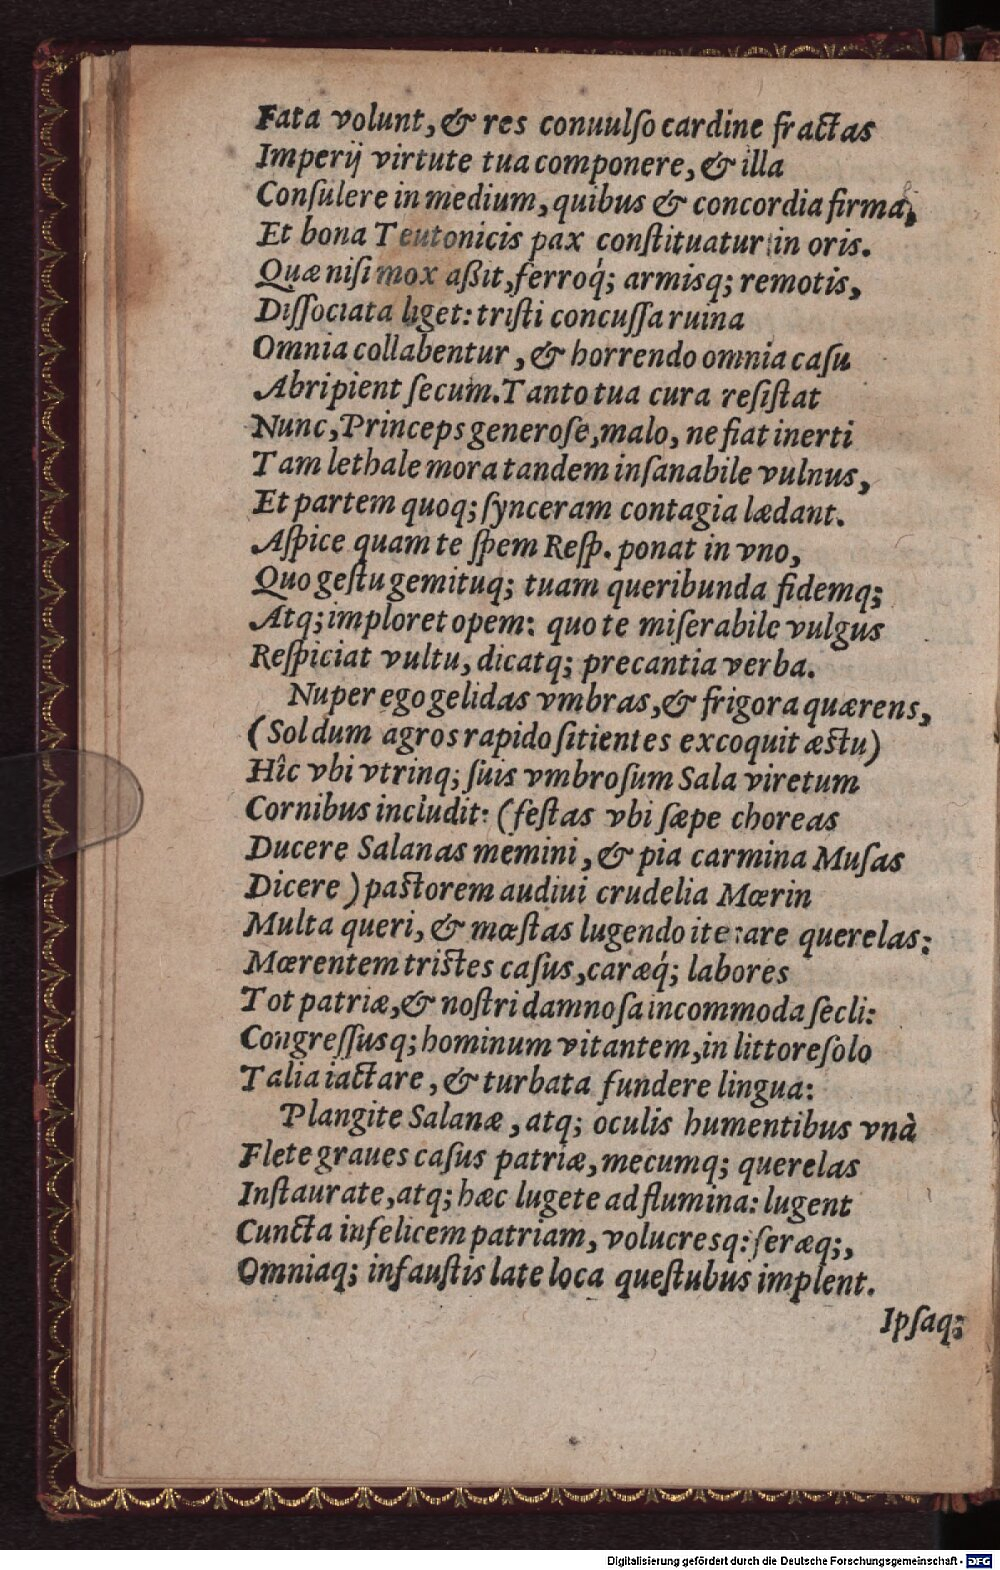 Fata volunt, & res conuulſo cardine fractas
Imperij virtute tua componere, & illa
Conſulere in medium, quibus & concordia firma,
Et bona Teutonicis pax conſtituatur in oris.
Quæ niſi mox aßit, ferroq́; armisq; remotis,
Diſſociata liget: triſti concuſſa ruina
Omnia collabentur, & horrendo omnia caſu
Abripient ſecum. Tanto tua cura reſiſtat
Nunc, Princeps generoſe, malo, ne fiat inerti
Tam lethale mora tandem inſanabile vulnus,
Et partem quoq; ſynceram contagia lædant.
Aſpice quam te ſpem Reſp. ponat in vno,
Quo geſtu gemituq; tuam queribunda fidemq;
Atq; imploret opem: quo te miſerabile vulgus
Reſpiciat vultu, dicatq; precantia verba.
Nuper ego gelidas vmbras, & frigora quærens,
(Sol dum agros rapido ſitientes excoquit æſtu)
Hîc vbi vtrinq; ſuis vmbroſum Sala viretum
Cornibus includit: (feſtas vbi ſæpe choreas
Ducere Salanas memini, & pia carmina Muſas
Dicere) paſtorem audiui crudelia Mœrin
Multa queri, & mœſtas lugendo iterare querelas:
Mœrentem triſtes caſus, caræq́; labores
Tot patriæ, & noſtri damnoſa incommoda ſecli:
Congreſſusq; hominum vitantem, in littore ſolo
Talia iactare, & turbata fundere lingua:
Plangite Salanæ, atq; oculis humentibus vnà
Flete graues caſus patriæ, mecumq; querelas
Inſtaurate, atq; hæc lugete ad flumina: lugent
Cuncta infelicem patriam, volucresq: feræq;,
Omniaq; infauſtis late loca queſtubus implent.
Ipſaq;
Digitalisierung gefördert durch die Deutsche Forschungsgemeinschaft - DFG